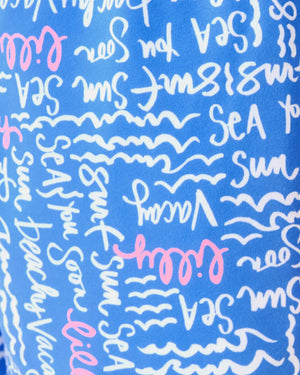 Beachy Vacay
Sea You
Soon
lilly
Sea
Surf
Sun
Sea
Sun
Vacay
lilly
Sea You Soon
Surf Sun Sea
Sun Beachy Vacay
lilly
Soon
Sea
Sun